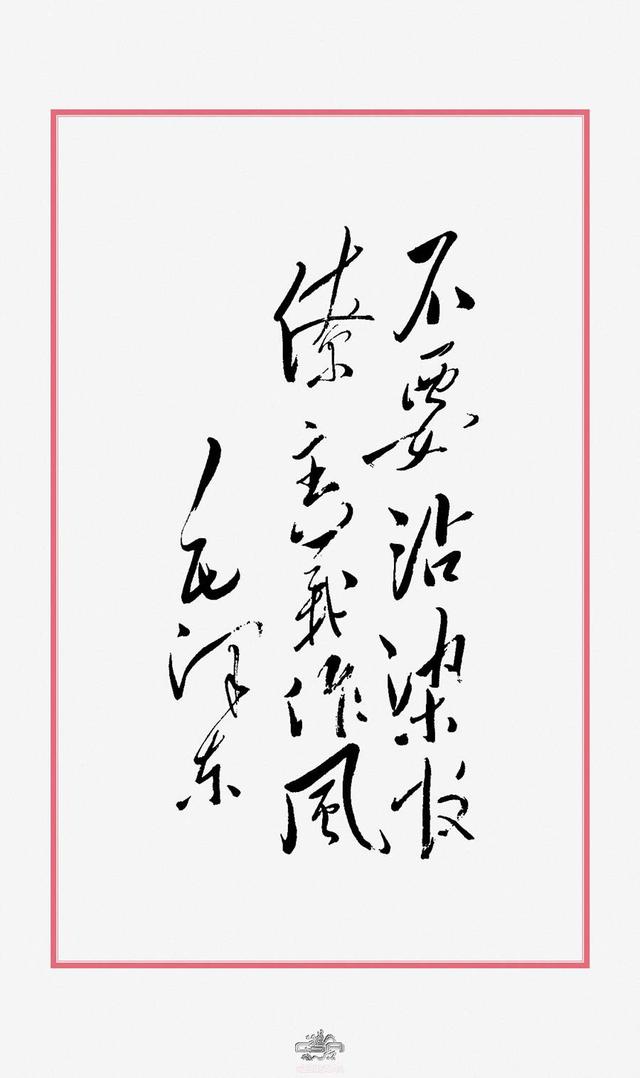 不要沾染
僚主義作風
毛泽东